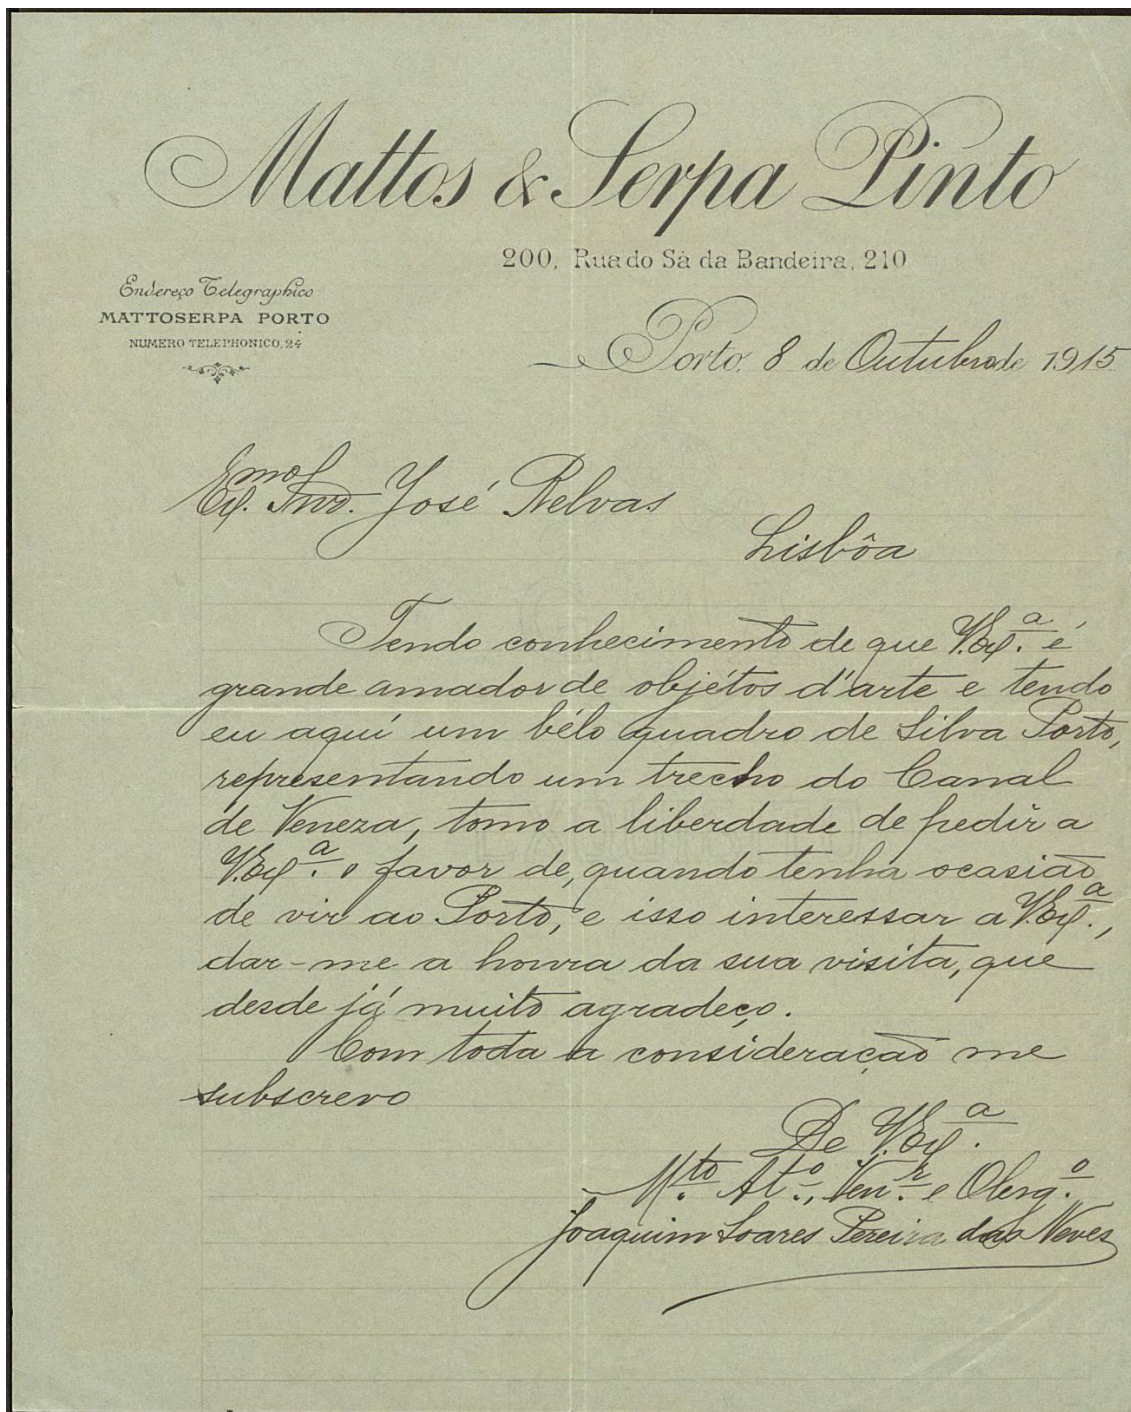 Mattos & Serpa Pinto
200, Rua do Sà da Bandeira, 210
Endereço Telegraphico
MATTOSERPA PORTO
NUMERO TELEPHONICO, 24
Porto, 8 de Outubro de 1915
Exmo Snr. José Relvas
Lisbôa
Tendo conhecimento de que V. Exª. é
grande amador de objétos d'arte e tendo
eu aqui um bélo quadro de Silva Porto,
representando um trecho do Canal
de Veneza, tomo a liberdade de pedir a
V. Exª. o favor de, quando tenha ocasião
de vir ao Porto, e isso interessar a V. Exª.,
dar-me a honra da sua visita, que
desde já muito agradeço.
Com toda a consideração me
subscrevo
De V. Exª.
Mto. Atº., Venr. e Obrgº.
Joaquim Soares Pereira das Neves